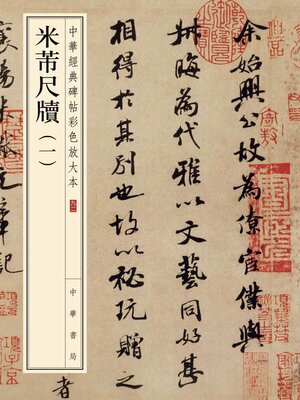 中華經典碑帖彩色放大本
米芾尺牘（一）
中華書局
余始興公故為僚宦僕與
叔晦為代雅以文藝同好甚
相得於其別也故以秘玩贈之
者
襄陽米黻元章記